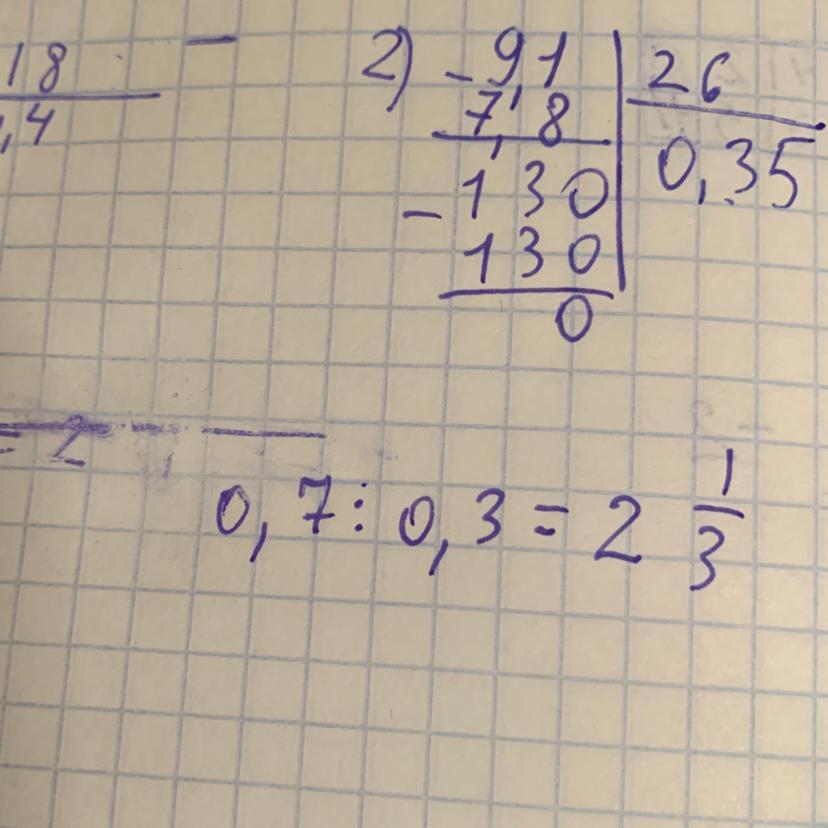 18 -
,4
2) -91 | 26
7,8 | 0,35
-130
130
0
= 2
0,7 : 0,3 = 2 1/3